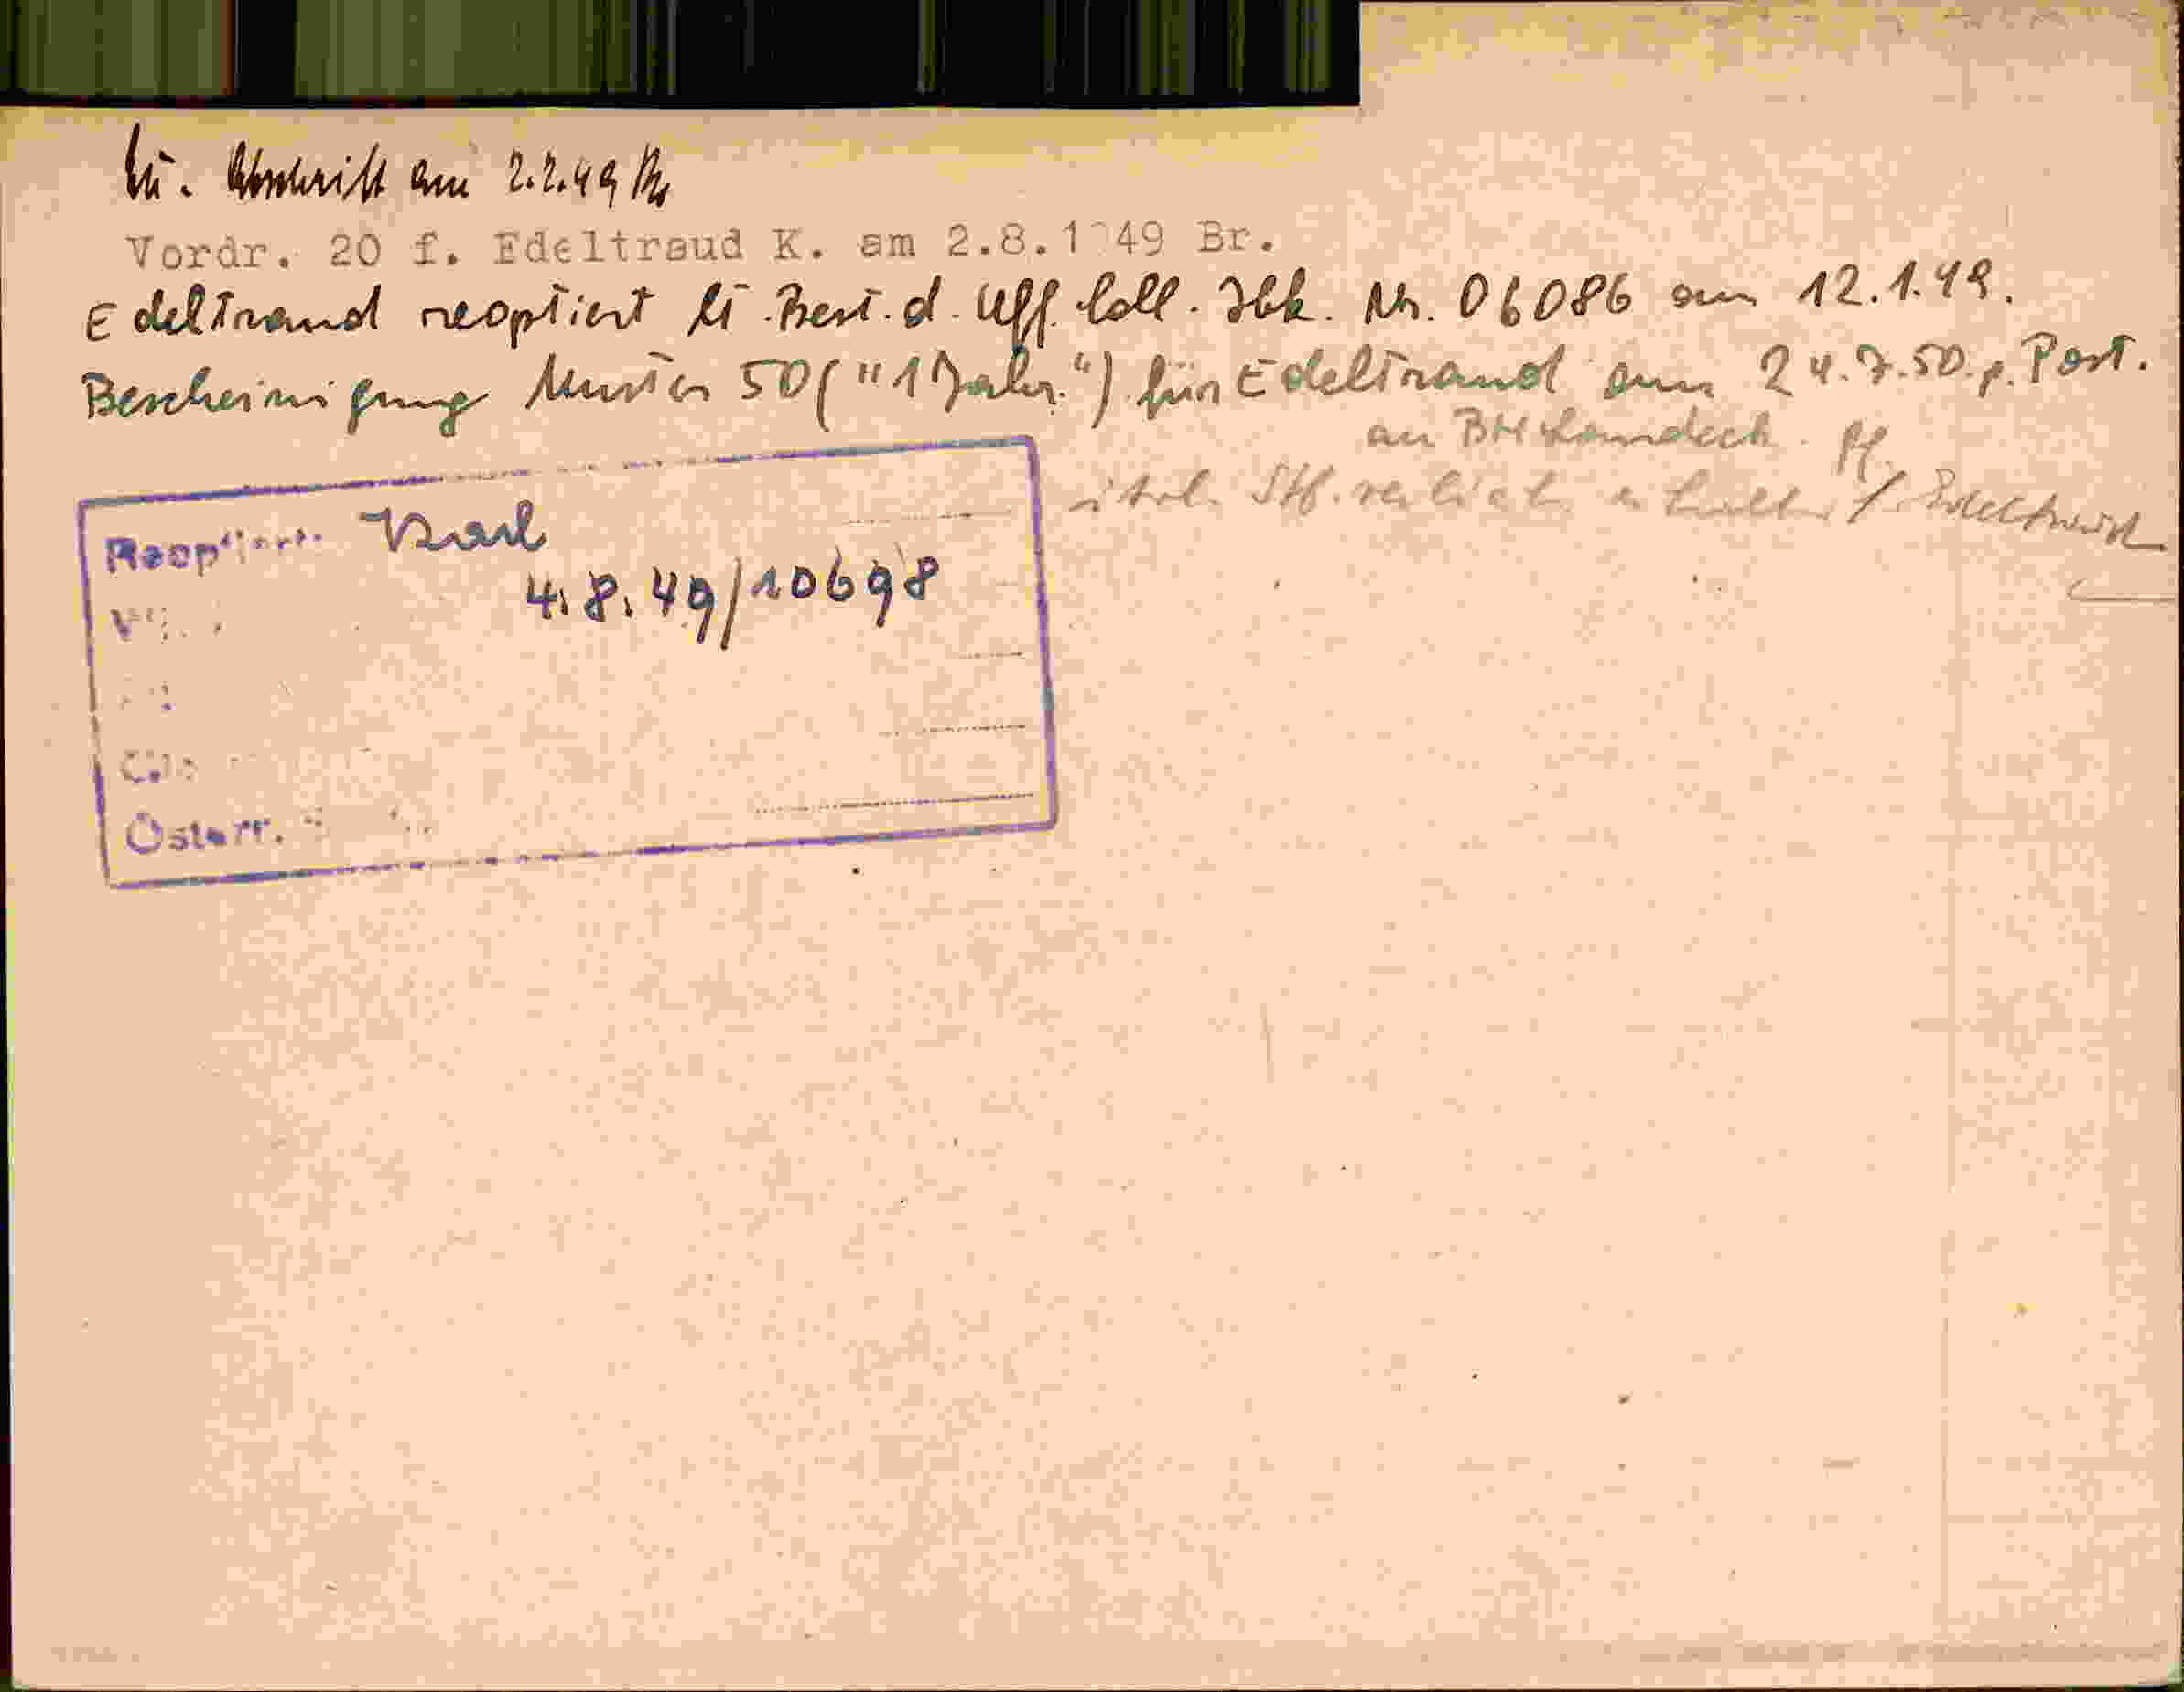 Abschrift am 2.2.49
Vordr. 20 f. Edeltraud K. am 2.8.1 49 Br.
Edeltraud reoptiert lt. Best. d. Uff. Coll. Ibk. Nr. 06086 am 12.1.49.
Bescheinigung Muster 50 ("1 Jahr") für Edeltraud am 24.7.50 p. Post.
an BH Landeck. Pf.
ital. Stb. verlieh. erhalt. f. Edeltraud
Reoptiert: Karl
4.8.49/10698
Österr.